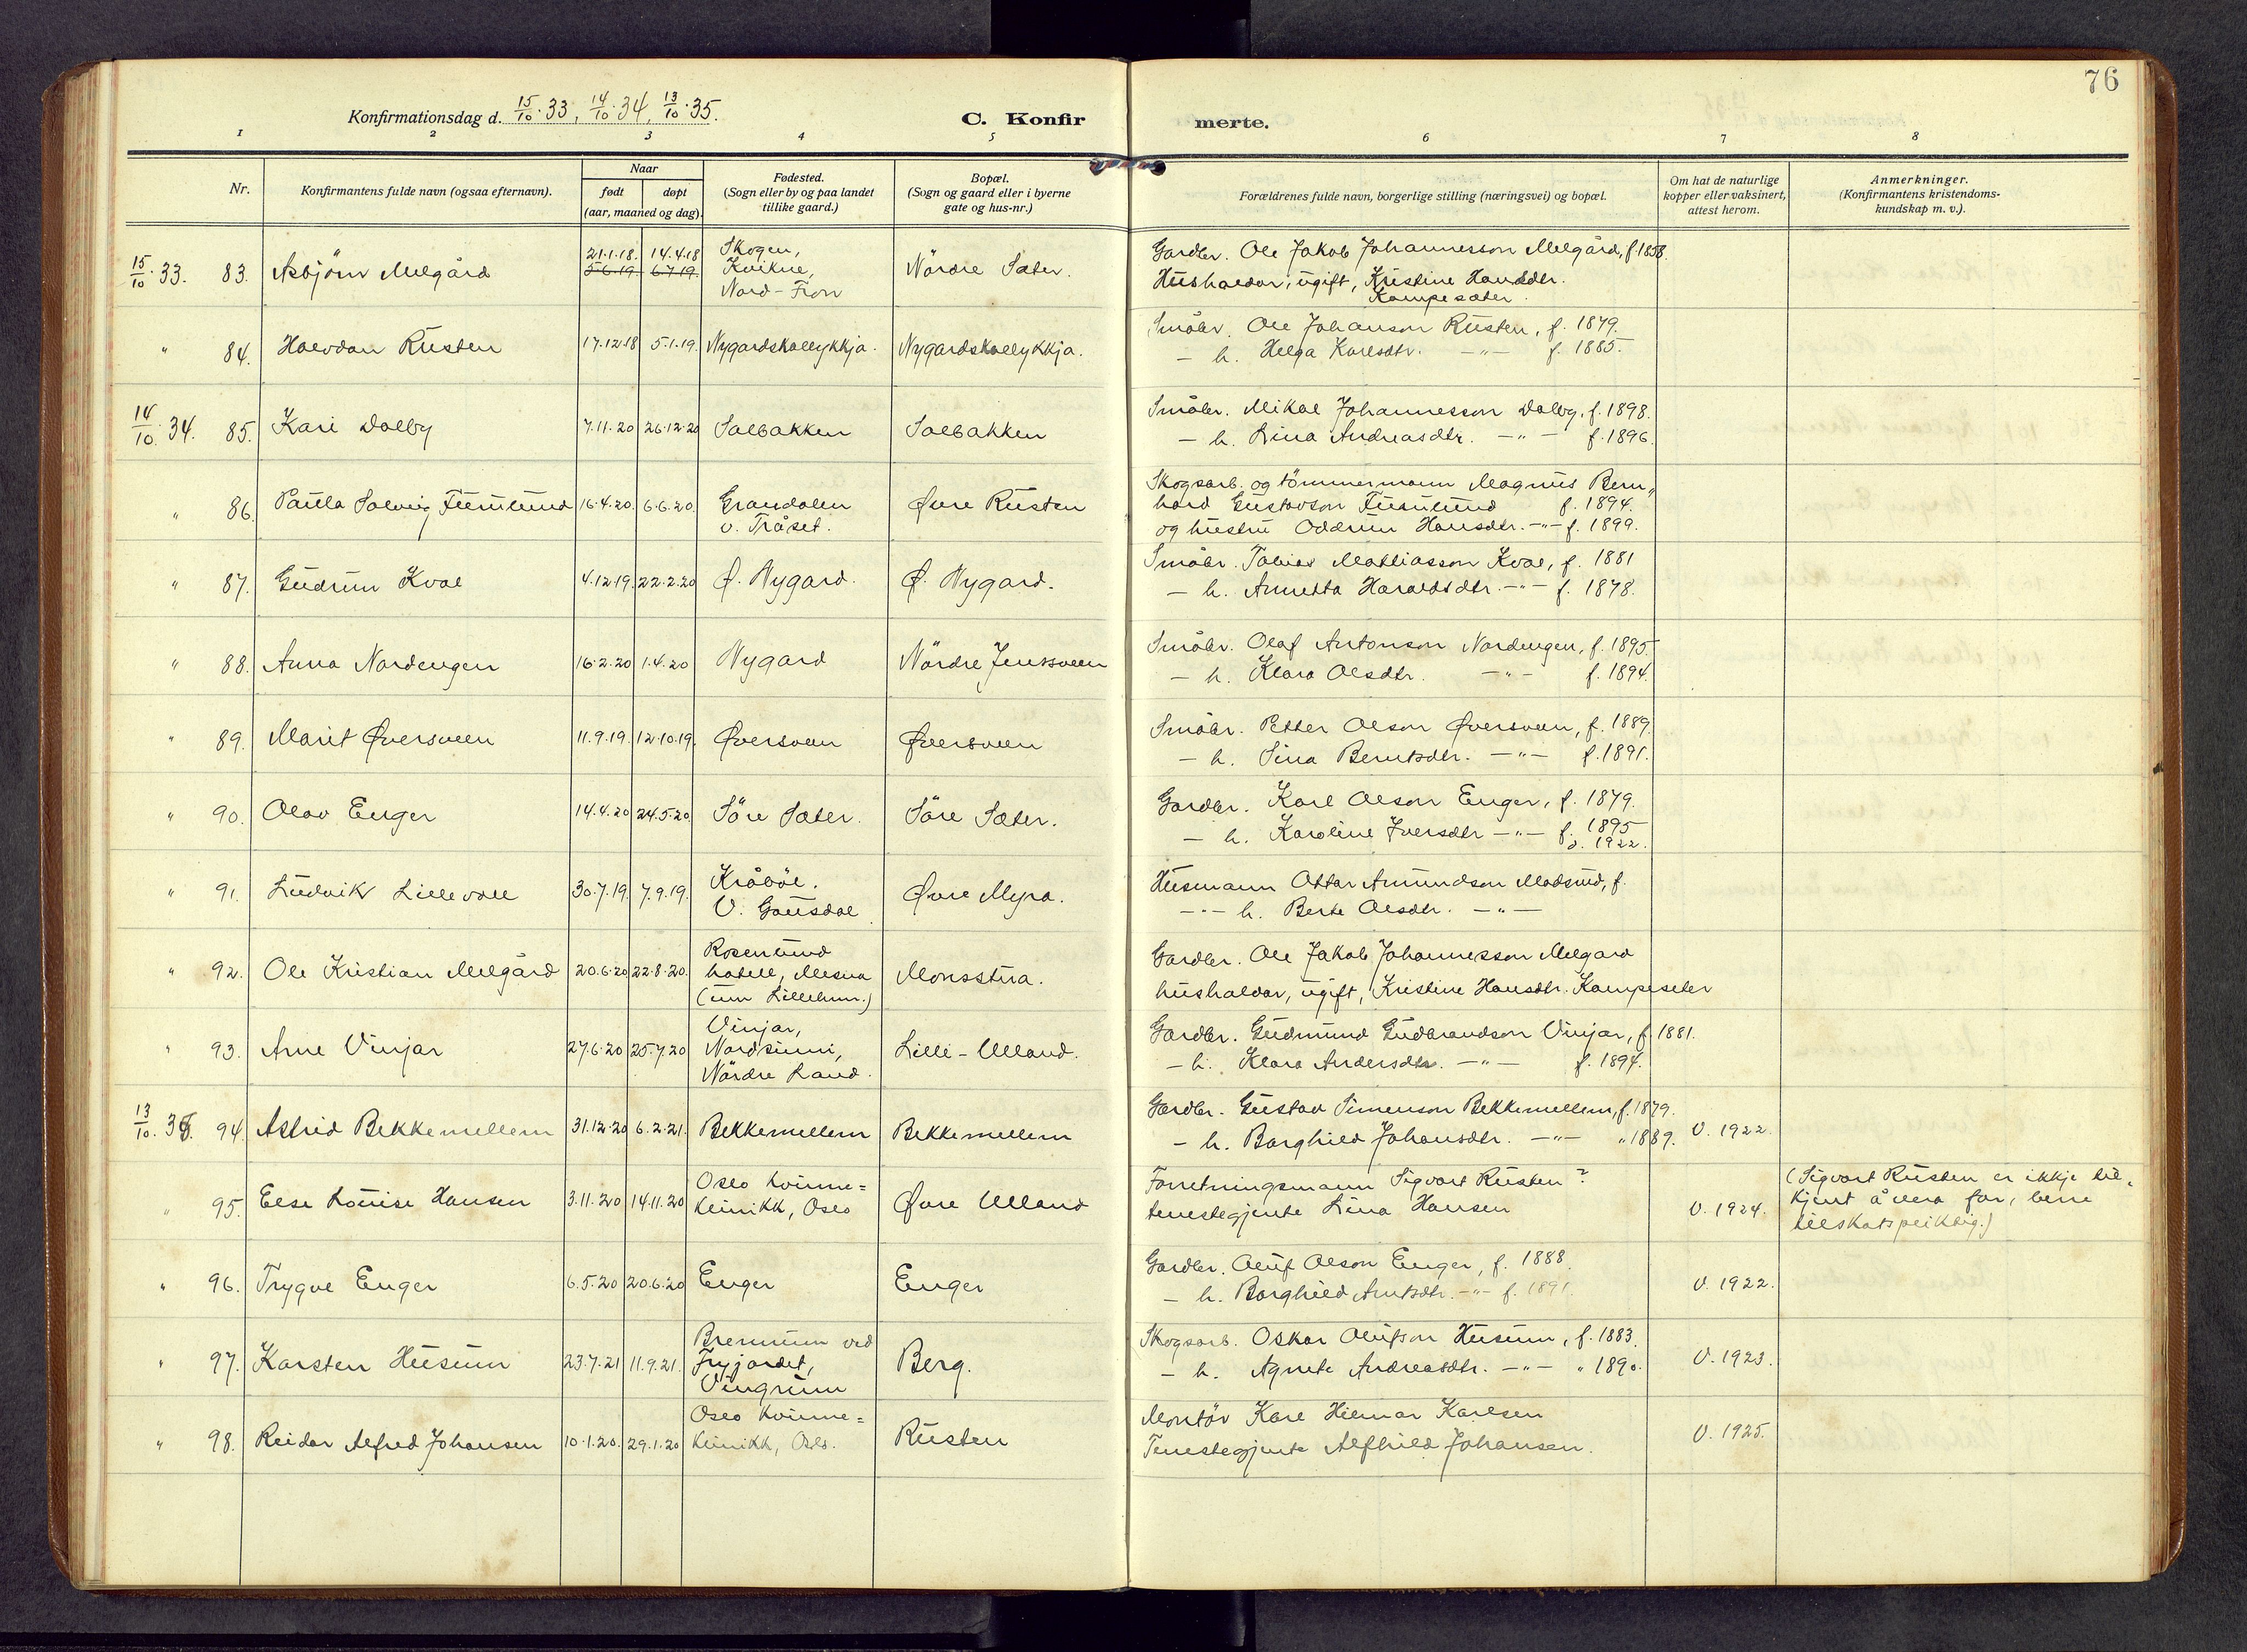 76
Konfirmationsdag d. 15/10.33, 14/10.34, 13/10.35.
C. Konfirmerte.
1 2 3 4 5 6 7 8
Nr.
Konfirmantens fulde navn (ogsaa efternavn).
Naar
født døpt
(aar, maaned og dag).
Fødested.
(Sogn eller by og paa landet
tillike gaard.)
Bopæl.
(Sogn og gaard eller i byerne
gate og hus-nr.)
Forældrenes fulde navn, borgerlige stilling (næringsvei) og bopæl.
Om hat de naturlige
kopper eller vaksinert,
attest herom.
Anmerkninger.
(Konfirmantens kristendoms-
kundskap m. v.).
15/10.33. 83. Asbjörn Melgård
21.1.18. 14.4.18
5.6.19. 6.7.19.
Skogen,
Kvikne,
Nord-Fron
Nördre Sæter.
Gardbr. Ole Jakob Johannesson Melgård, f. 1858.
Hushaldar, ugift, Kristine Hansdtr.
Kampesæter.
" 84. Halvdan Rusten 17.12.18 5.1.19. Nygardskallykkja. Nygardskallykkja.
Småbr. Ole Johanson Rusten, f. 1879.
— h. Helga Karlsdtr. —"— f. 1885.
14/10.34. 85. Kari Dalby 7.11.20 26.12.20 Solbakken Solbakken
Småbr. Mikal Johannesson Dalby, f. 1898.
— h. Lina Andreasdtr. —"— f. 1896.
" 86. Paula Solveig Furulund 16.4.20. 6.6.20.
Grandalen
v. Tråset.
Øvre Rusten
Skogsarb. og tömmermann Magnus Bern„
hard Gustavson Furulund f. 1894.
og hustru Oddrun Hansdtr. —"— f. 1899.
" 87. Gudrun Kval 4.12.19. 22.2.20 Ø. Nygard. Ø. Nygard.
Småbr. Tobias Mattiasson Kval, f. 1881
— h. Annetta Haraldsdtr. —"— f. 1878.
" 88. Anna Nordengen 16.2.20 1.4.20 Nygard Nördre Jenssveen
Småbr. Olaf Antonson Nordengen, f. 1895
— h. Klara Olsdtr. —"— f. 1894.
" 89. Marit Øversveen 11.9.19. 12.10.19. Øversveen Øversveen
Småbr. Petter Olson Øversveen, f. 1889.
— h. Sina Berntsdtr. —"— f. 1891.
" 90. Olav Enger 14.4.20 24.5.20. Söre Sæter. Söre Sæter.
Gardbr. Karl Olson Enger, f. 1879.
— h. Karoline Iversdtr —"— f. 1895
d. 1922.
" 91. Ludvik Lillevoll 30.7.19. 7.9.19.
Kråböl.
V. Gausdal
Øvre Myra.
Husmann Ottar Amundson Modsud, f.
—"— h. Berte Olsdtr. —"—
" 92. Ole Kristian Melgård 20.6.20 22.8.20.
Rosenlund
hotell, Mesna
(um Lilleham.)
Monsstua.
Gardbr. Ole Jakob Johannesson Melgard
hushaldar, ugift, Kristine Hansdtr. Kampeseter
" 93. Arne Vinjar 27.6.20 25.7.20
Vinjar,
Nordsinni,
Nördre Land.
Lilli-Ulland.
Gardbr. Gudmund Gudbrandson Vinjar, f. 1881.
— h. Klara Andersdtr. —"— f. 1894.
13/10.35. 94. Astrid Bekkemellem 31.12.20 6.2.21. Bekkemellem Bekkemellem
Gardbr. Gustav Simenson Bekkemellem, f. 1879.
— h. Borghild Johansdtr. —"— " 1889. V. 1922.
" 95. Else Louise Hansen 3.11.20 14.11.20
Oslo kvinne=
klinikk, Oslo
Øvre Ulland
Forretningsmann Sigvart Rusten?
tenestegjente Lina Hansen
V. 1924.
(Sigvart Rusten er ikkje til„
kjent å vera far, berre
tilskotspliktig.)
" 96. Trygve Enger 6.5.20 20.6.20 Enger Enger
Gardbr. Oluf Olson Enger, f. 1888.
— h. Borghild Arntsdtr. —"— f. 1891.
V. 1922.
" 97. Karsten Husum 23.7.21 11.9.21.
Bremnum ved
Fryjordet,
Vingrum
Berg.
Skogsarb. Oskar Olufson Husum, f. 1883.
— h. Agnete Andreasdtr. —"— " 1890.
V. 1923.
" 98. Reidar Alfred Johansen 10.1.20. 29.1.20
Oslo kvinne=
klinikk, Oslo.
Rusten
Montör Karl Hilmar Karlsen
Tenestegjente Alfhild Johansen.
V. 1925.